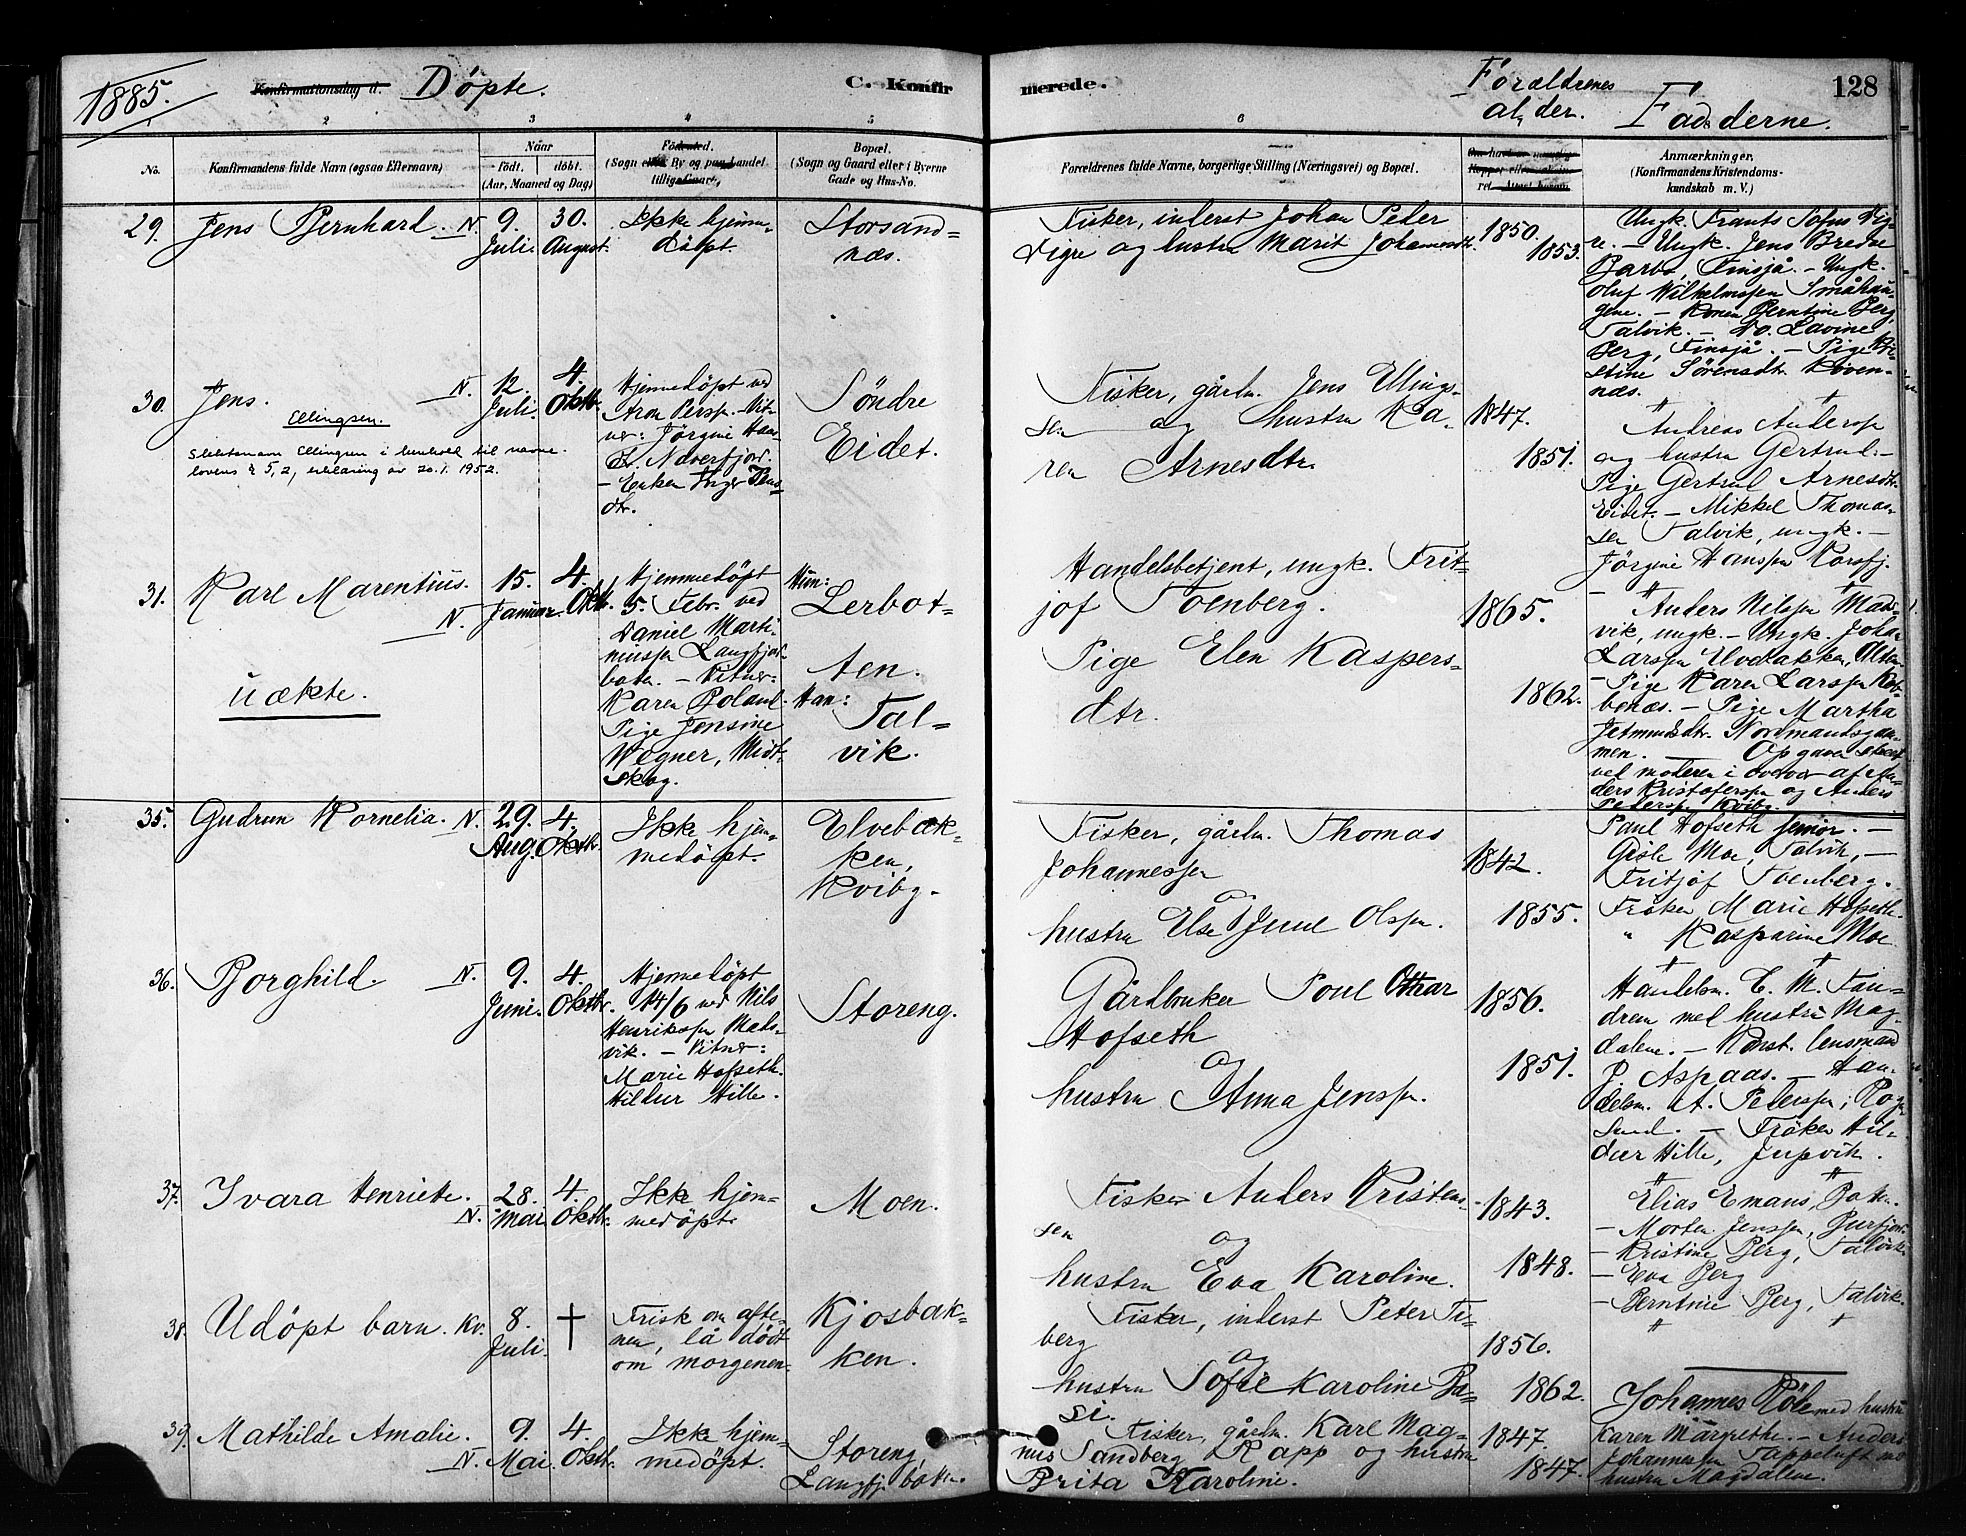 1885.
Konfirmationsdag d. Döpte.
C. Konfirmerede.
Forældrenes alder.
Fadderne.
128
1 2 3 4 5 6
No.
Konfirmandens fulde Navn (egsaa Efternavn)
Naar
födt. döbt.
(Aar, Maaned og Dag)
Födested.
(Sogn eller By og paa Landet
tillige Gaard)
Bopæl.
(Sogn og Gaard eller i Byerne
Gade og Hus-No.
Forældrenes fulde Navne, borgerlige Stilling (Næringsvei) og Bopæl.
Anmærkninger.
(Konfirmandens Kristendoms-
kundskab m. V.)
29. Jens Bernhard. N.
9. Juli.
30. August.
Ikke hjemme-
döpt.
Storsand-
næs.
Fisker, inderst Johan Peter
Digre og hustru Marit Johannesdtr.
1850.
1853.
Ungk. Frants Sofus Dig-
re. – Ungk. Jens Bredne
Finsjå. – Ungk.
Oluf Wilhelmssen Småhau-
gene. – Konen Berntine Berg,
Talvik. – Do. Lavine
Berg, Finsjå. – Pige Kri-
stine Sörensdtr.
næs.
30. Jens. N.
Ellingsen.
Slektsnavn Ellingsen i henhold til navne-
lovens § 5,2, erklæring av 20.1.1952.
12. Juli.
4. Oktbr.
Hjemmedöpt ved
Aron Persen. – Vit-
ner: Jörgine Han-
– Enken Inger Jens-
dtr.
Söndre
Eidet.
Fisker, gårbr. Jens Elling-
sen og hustru Ka-
ren Arnesdtr.
1847.
1851.
Andreas Anderssen
og hustru Gertrud. –
Pige Gertrud Arnesdtr.
Eidet. – Mikkel Thomas-
sen Talvik, ungk. –
Jörgine Hanssen Korsfj.
31. Karl Marentius. N.
uækte.
15. Januar.
4. Oktbr.
Hjemmedöpt
5. Febr. ved
Daniel Marti-
niussen Langfjord-
boten. – Vitner:
Karen Boland.
Pige Jensine
Wegner, Midt-
skog.
Hun:
Lerbot-
ten.
Han:
Tal-
vik.
Handelsbetjent, ungk. Frit-
jof Foenberg.
Pige Elen Kaspers-
dtr.
1865.
1862.
– Anders Nilssen Mads-
vik, ungk. – Ungk. Johan
Larssen
– Pige Karen Larssen
– Pige Martha
Jetmundsdtr. Nordmandsgam-
men. – Opgaven
ved moderen i overvær af An-
ders Kristoferssen og Anders
Peterssen Kvibg.
35. Gudrun Kornelia. N.
29. Aug.
4. Oktbr.
Ikke hjem-
medöpt.
Elvebak-
ken,
Kvibg.
Fisker, gårbr. Thomas
Johannessen
og
hustru Else Juul Olsen.
1842.
1855.
Paul Hofseth senior. –
Gisle Moe, Talvik, –
Fritjof Foenberg.
Fröken Marie Hofseth.
" Kasparine Moe
36. Borghild. N.
9. Juni.
4. Oktbr.
Hjemmedöpt
14/6 ved Nils
Henrikssen Mads-
vik. – Vitner:
Marie Hofseth.
Hildur Hille.
Storeng.
Gårdbruker Poul Otthar
Hofseth
og
hustru Anna Jenssen.
1856.
1851.
Handelsm. C. M. Fan-
drem med hustru Mag-
dalene. – Konst. lensmand
P. Aspaas. – Han-
delsm. A. Peterssen, Rog-
sund. – Fröken Hil-
dur Hille, Jupvik.
37. Ivara Henriette. N.
28. Mai
4. Oktbr.
Ikke hjem-
medöpt.
Moen.
Fisker Anders Kristens-
sen
og
hustru Eva Karoline.
1843.
1848.
Elias Emans,
– Morten Jenssen,
– Kristine Berg, Talvik
– Eva Berg
– Berntine Berg, Talvik.
38. Udöpt barn. Kv.
8. Juli.
†
Frisk om afte-
nen, lå dödt
om morgenen.
Kjosbak-
ken.
Fisker, inderst Peter Ti-
berg
og
hustru Sofie Karoline Ba-
si.
1856.
1862.
39. Mathilde Amalie. N.
9. Mai.
4. Oktbr.
Ikke hjem-
medöpt.
Storeng,
Langfj. boten.
Fisker, gårbr. Karl Mag-
nus Sandberg Rapp og hustru
Brita Karoline.
1847.
1847.
Johannes Röle med hustru
Karen Margrethe. – Anders
Johannessen Tappeluft
hustru Magdalene.